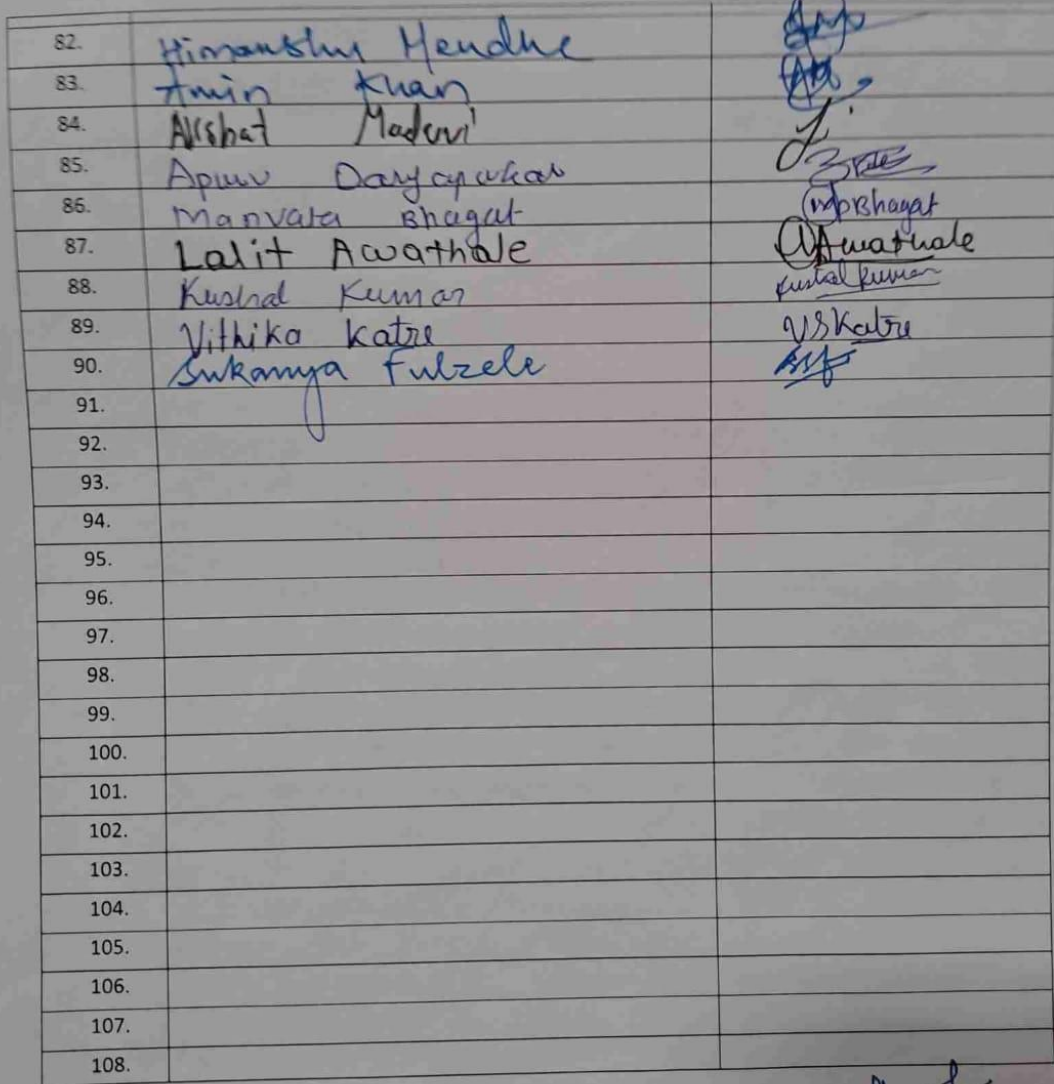 82. Himanshu Mendhe
83. Amin Khan
84. Akshat Madavi
85. Apurv Daryapurkar
86. Manvata Bhagat Bhagat
87. Lalit Awathale Awathale
88. Kushal Kumar Kushal Kumar
89. Vithika Katre VSKatre
90. Sukanya Fulzele
91.
92.
93.
94.
95.
96.
97.
98.
99.
100.
101.
102.
103.
104.
105.
106.
107.
108.